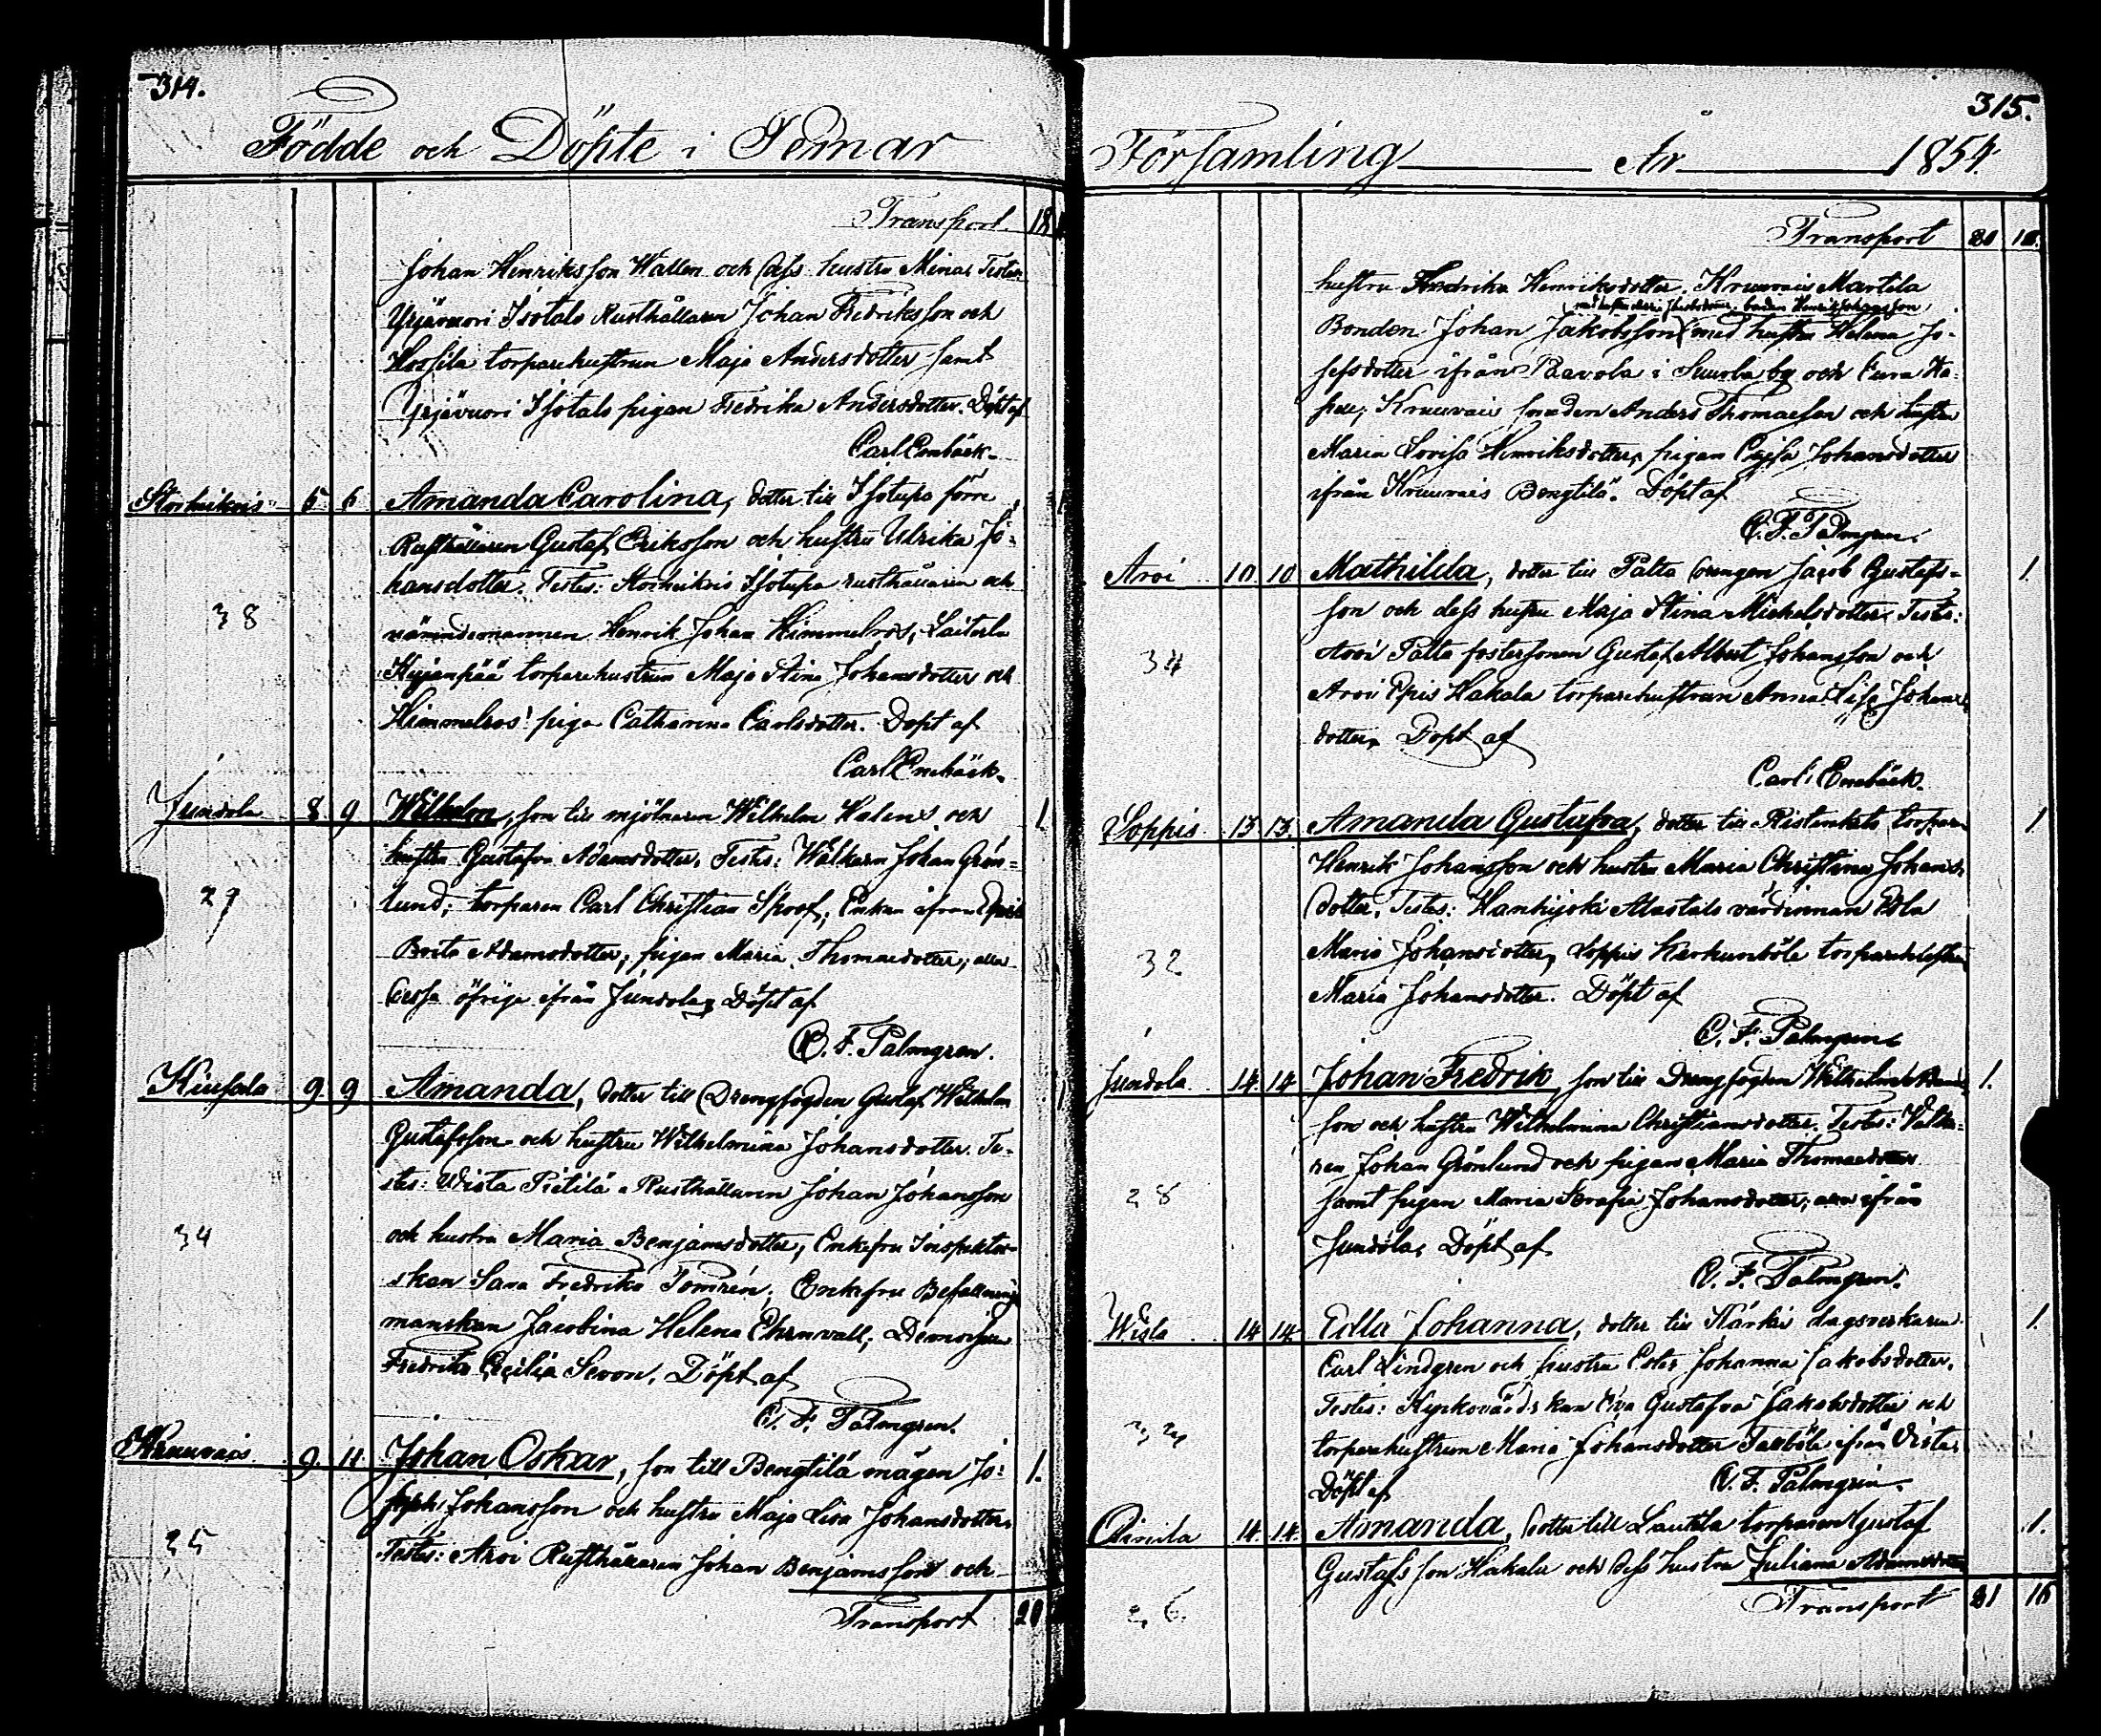 314.
Födde och Döpte i Pemar
Transport 18
Johan Henriksson Wallen och dess hustru Mina; Testes:
Yrjävuori Isotalo Rusthållaren Johan Fredriksson och
torparehustrun Maja Andersdotter samt
Yrjävuori Isotalo pigan Fredrika Andersdotter. Döpt af
Carl Enebäck.
6 6 Amanda Carolina, dotter till Isotupa förre
Rusthållaren Gustaf Eriksson och hustru Ulrika Jo-
hansdotter. Testes: Isotupa rusthållaren och
38
nämndemannen Henrik Johan Himmelros,
Kujanpää torparehustrun Maja Stina Johansdotter och
Himmelros' piga Catharina Carlsdotter. Döpt af
Carl Enebäck.
Jundola 8 9 Wilhelm, son till mjölnaren Wilhelm Halen och 1
hustru Gustafva Adamsdotter, Testes: Walkaren Johan Grön-
29
lund; torparen Carl Christian Spoof, Enkan ifrån
Brita Adamsdotter, pigan Maria Thomasdotter; alla
dessa öfrige ifrån Jundola. Döpt af
C. F. Palmgren.
9 9 Amanda, dotter till Drengfogden Gustaf Wilhelm 1
Gustafsson och hustru Wilhelmina Johansdotter. Te-
stes: Wista Pietilä Rusthållaren Johan Johansson
34
och hustru Maria Benjamsdotter, Enkefru Inspektor-
skan Sara Fredrika Enkefru Befallnings-
manskan Jacobina Helena Ehrnvall;
Fredrika Cecilia Sevon. Döpt af
C. F. Palmgren.
Kruuvais 9 11 Johan Oskar, son till Bengtilä mågen Jo- 1.
seph Johansson och hustru Maja Lisa Johansdotter.
25
Testes: Arvi Rusthållaren Johan Benjamsson och
Transport 20
315.
Församling År 1854.
Transport 20 10.
hustru Fredrika Henriksdotter, Kruuvais Martila
Bonden Johan Jakobsson med hustru Helena Jo-
sefsdotter ifrån Paavola i by och
Kruuvais Anders Thomasson och hustru
Maria Lovisa Henriksdotter, pigan Cajsa Johansdotter
ifrån Kruuvais Bengtilä. Döpt af
C. F. Palmgren.
Arvi 10 10 Mathilda, dotter till Patta drengen Jacob Gustafs- 1.
son och dess hustru Maja Stina Michelsdotter. Testes:
34
Arvi Patta fostersonen Gustaf Albert Johansson och
Arvi Hakala torparehustrun Anna Lisa Johans-
dotter. Döpt af
Carl Enebäck.
Loppis 13 13. Amanda Gustafva, dotter till torparen 1
Henrik Johansson och hustru Maria Christina Johans-
dotter. Testes: Hankijoki Alastalo värdinnan
32
Maria Johansdotter, Loppis torparehustrun
Maria Johansdotter. Döpt af
C. F. Palmgren.
Jundola 14 14 Johan Fredrik, son till Drengfogden Wilhelm 1.
son och hustru Wilhelmina Christiansdotter. Testes: Valka-
ren Johan Grönlund och pigan Maria Thomasdotter
28
samt pigan Maria Serafia Johansdotter; alla ifrån
Jundola. Döpt af
C. F. Palmgren.
Wista 14 14 Edla Johanna, dotter till Kärki dagsverkaren 1.
Carl Lindgren och hustru Johanna Jakobsdotter.
Testes: Kyrkovärdskan Eva Gustafva Jakobsdotter och
torparehustrun Maria Johansdotter ifrån Vista.
Döpt af C. F. Palmgren.
14. 14. Amanda, dotter till Laukka torparen Gustaf 1.
Gustafsson Hakala och dess hustru Juliana Adamsdotter
26.
Transport 21 16